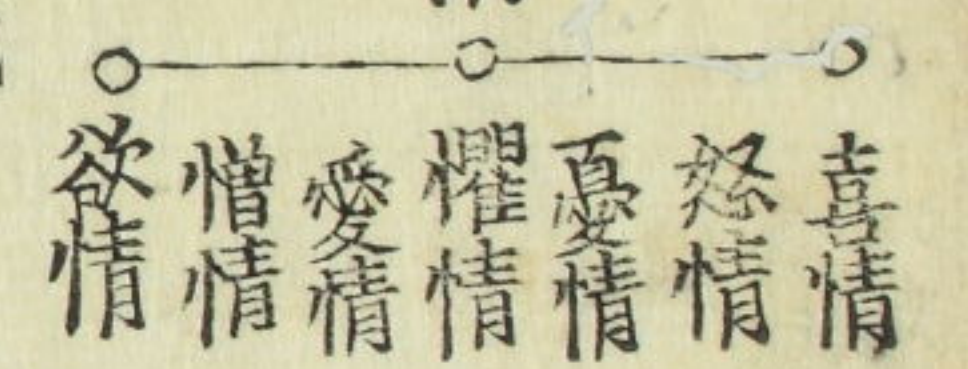 喜情
怒情
憂情
懼情
愛情
憎情
欲情